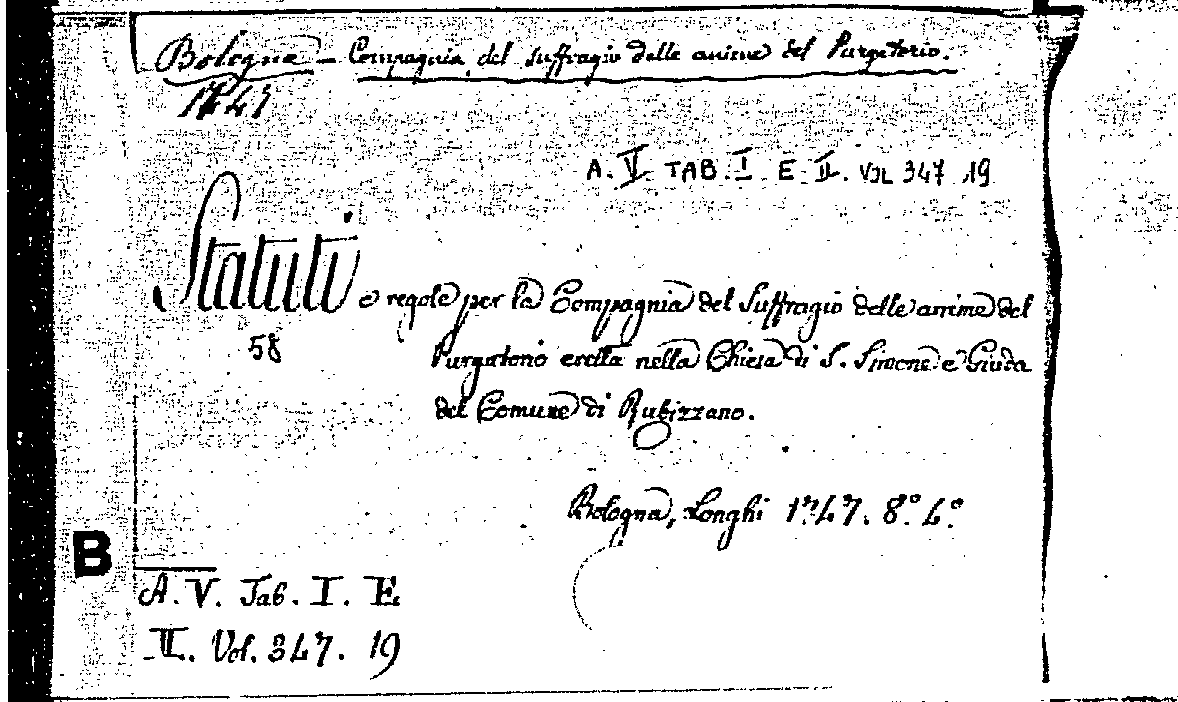 Bologna – Compagnia del Suffragio delle anime del Purgatorio.
1747
A. V. TAB. I. E. II. VOL 347 19
Statuti e regole per la Compagnia del Suffragio delle anime del
58
Purgatorio eretta nella Chiesa di S. Simone e Giuda
del Comune di Rubizzano.
Bologna, Longhi 1747. 8.° 4.°
B
A. V. Tab. I. E
II. Vol. 347. 19